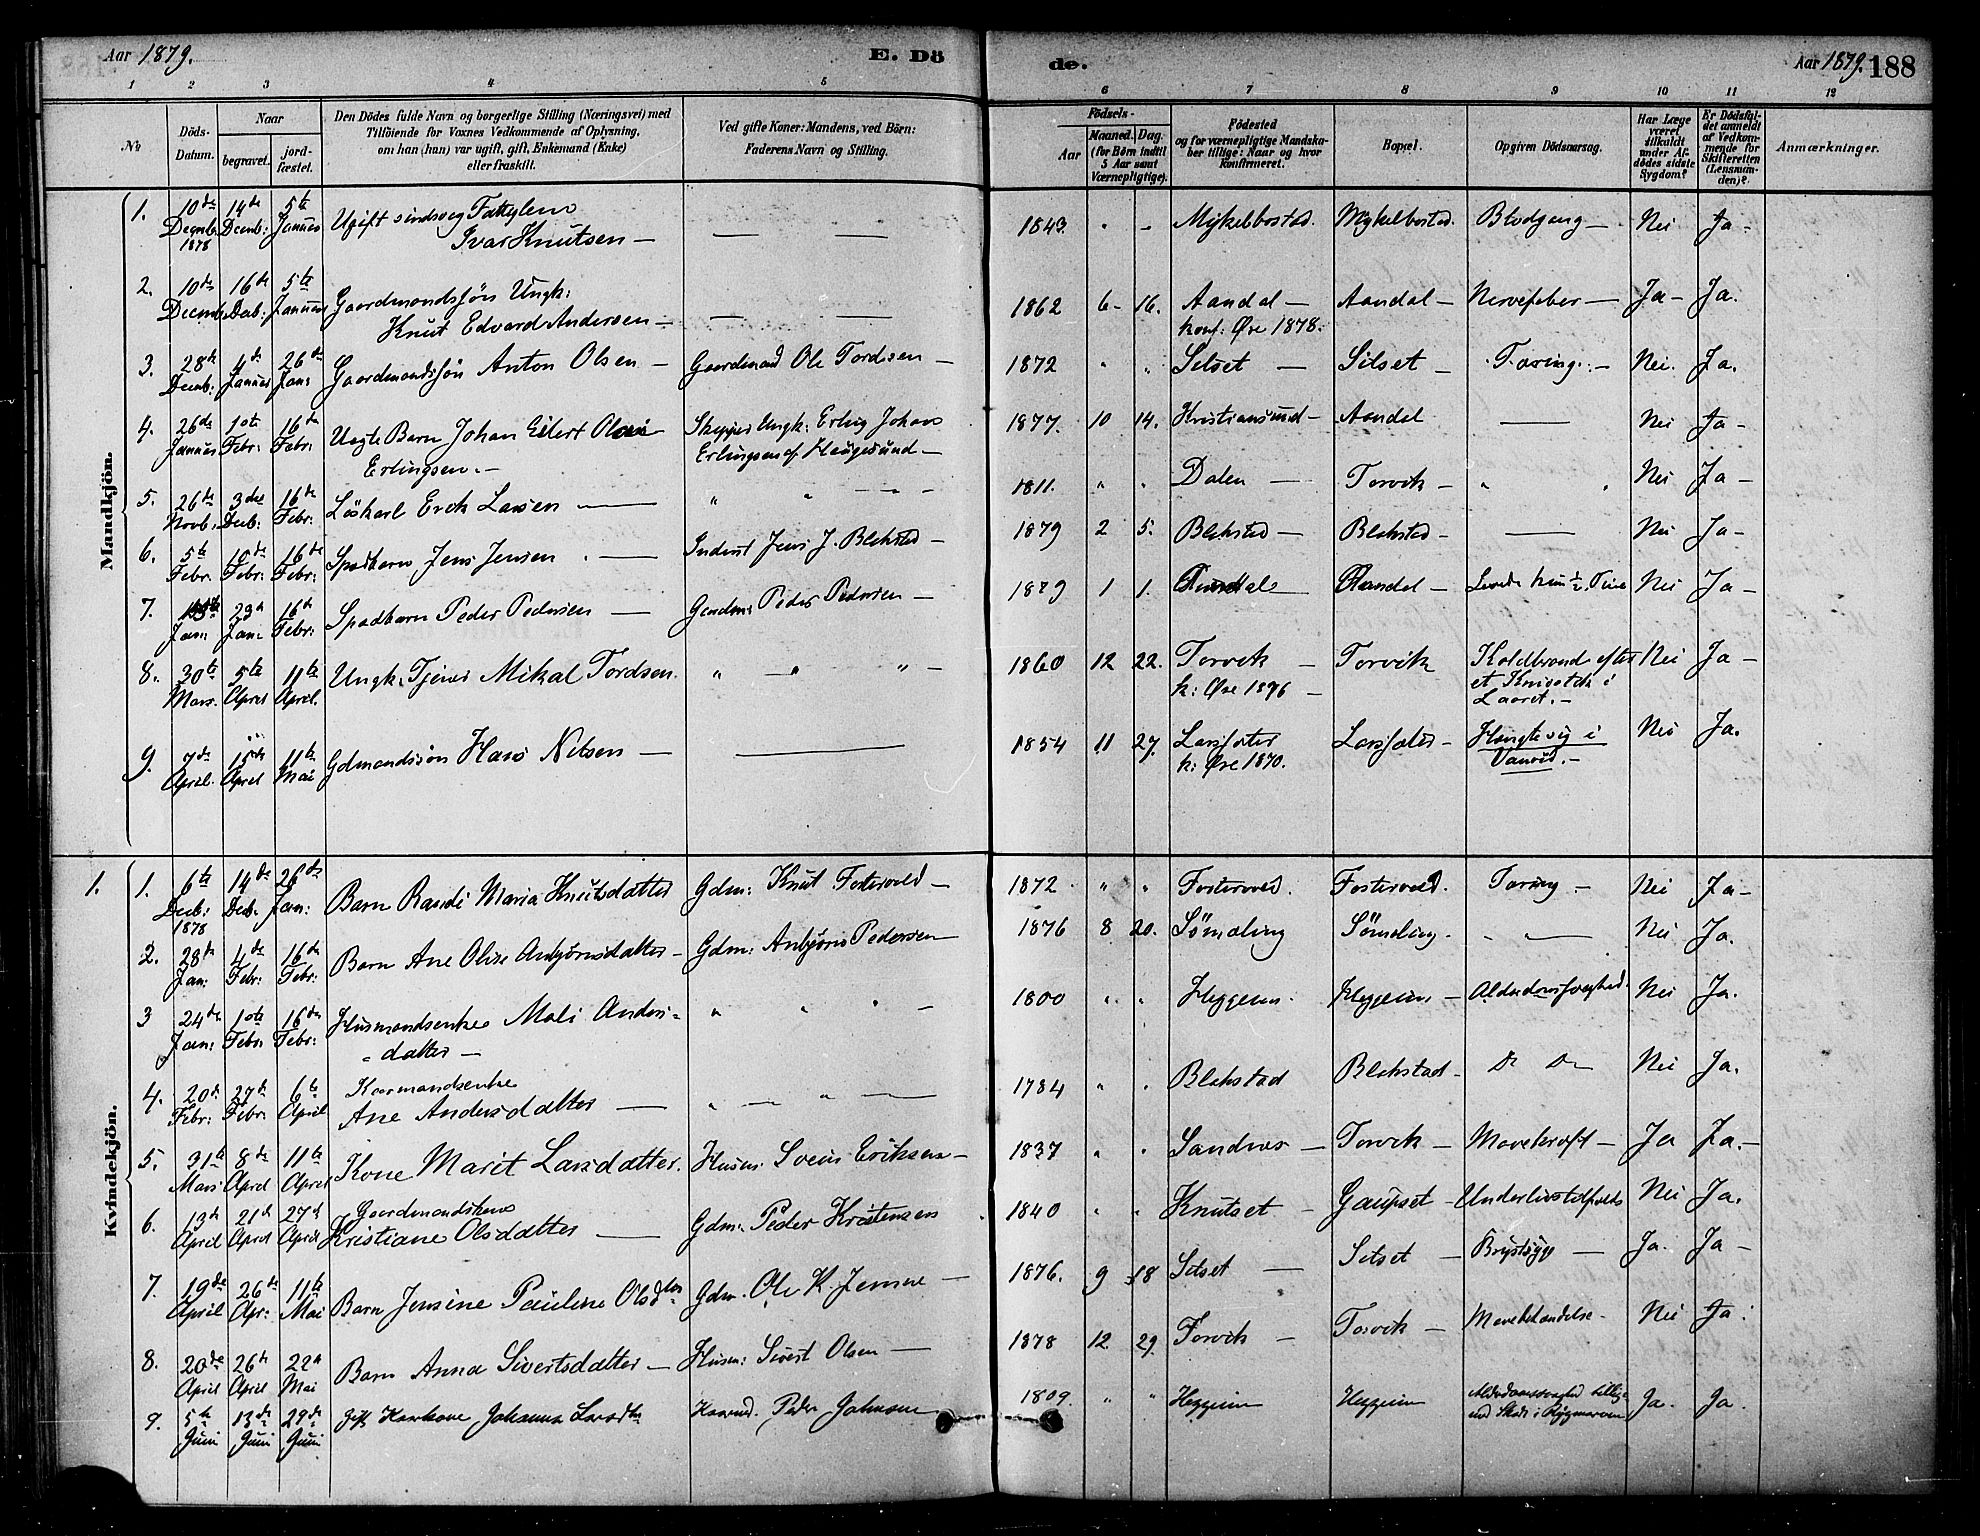 Aar 1879. E. Dö
de. Aar 1879. 188
1 2 3 4 5 6 7 8 9 10 11 12
No
Döds-Datum.
Naar
begravet.
jordfæstet.
Den Dödes fulde Navn og borgerlige Stilling (Næringsvei) med
Tilföiende for Voxnes Vedkommende af Oplysning,
om han (hun) var ugift, gift, Enkemand (Enke)
eller fraskilt.
Ved gifte Koner: Mandens, ved Börn:
Faderens Navn og Stilling.
Födsels-
Aar
Maaned. Dag.
(for Börn indtil
5 Aar samt
Værnepligtige).
Födested
og for værnepligtige Mandskaber tillige: Naar og hvor
konfirmeret.
Bopæl.
Opgiven Dödsaarsag.
Har Læge
været
tilkaldt
under Afdödes sidste
Sygdom?
Er Dödsfaldet anmeldt
af Vedkommende for
Skifteretten
(Lensmanden)?
Anmærkninger.
Mandkjön.
1. 10de Decmb. 1878 14de Decmb: 5te Januar Ugift sindsvg Fattylem
Ivar Knutsen — 1843. " - Mykelbostad. Mykelbostad. Blodgang — Nei Ja -
2. 10de Decmb. 16de Decb: 5te Januar Gaardmandssøn Ungk:
Knut Edvard Andersen — 1862 6 - 16. Aandal — Aandal — Nervefeber — Ja - Ja.
konf: Øre 1878.
3. 28de Decmb. 4de Januar 26de Jan: Gaardmandssøn Anton Olsen — Gaardmand Ole Tordsen — 1872 " " Silset — Silset — Tæring. — Nei. Ja.
4. 26de Januar 1ste Febr: 16de Febr: Uægte Barn Johan Eilert
Erlingsen. — Skipper Ungk: Erling Johan
Erlingsen af Haugesund — 1877. 10 14. Kristiansund — Aandal — Nei Ja -
5. 26de Novb. 3die Decb: 16de Febr: Løskarl Erik Larsen — " " 1811. " " Dalen — Torvik — " " Nei Ja -
6. 5te Febr. 10de Febr: 16de Febr: Spædbarn, Jens Jensen — Inderst Jens J. Blekstad — 1879 2 5. Blekstad — Blekstad — Nei Ja -
7. Jan: 23de Jan: 16de Febr: Spædbarn Peder Pedersen — Gaardm: Peder Pedersen — 1879 1 1. Aandal — Levede kun ½ Time Nei Ja -
8. 30te Mars. 5te April 11te April. Ungk. Tjener Mikal Tordsen. " " " 1860 12 22. Torvik — Torvik Koldbrand efter Nei Ja -
k: Øre 1876 — et Knivstik i
Laaret. —
9. 7de April. 15de April 11te Mai Gdmandssøn Hans Nilsen — 1854 11 27. Larssæter Larssæter — Hængte sig i Nei Ja.
k: Øre 1870. Vanvid. —
Kvindekjön.
1. 1. 6te Decb: 1878 14de Decb. 26de Jan: Barn Randi Maria Knutsdatter Gdm: Knut Fostervold — 1872 " " Fostervold. Fostervold. Tæring — Nei Ja -
2. 28de Jan: 4de Febr: 16de Febr: Barn Ane Oline Anbjørnsdatter — Gdm: Anbjørn Pedersen 1876 8 20. Sømeling Sømeling. " " Nei Ja.
3 24de Jan: 1ste Febr 16de Febr: Husmandsenke Mali Anders-
datter — " " " 1800 " " Heggeim. Heggeim — Alderdomssvaghed. Nei Ja.
4. 20de Febr: 27de Febr: 6te April Kaarmandsenke
Ane Andersdatter — " " 1784 " " Blekstad Blekstad — Do Do Nei Ja.
5. 31te Mars 8de April 11te April Kone Marit Larsdatter. Husm: Svein Eriksen — 1837 " " Sandnes — Torvik — Mavekræft — Ja Ja. -
6. 13de April 21de April 27de April Gaardmandskone
Kristiane Olsdatter — Gdm: Peder Kristensen 1840 " " Knutset — Gaupset — Nei Ja.
7. 19de April 26de Apr: 11te Mai Barn Jensine Pauline Olsdtr Gdm. Ole K. Jensen — 1876. 9 18 Silset — Silset — Brystsyge — Ja. Ja -
8. 20de April 26de April 22de Mai Barn Anna Sivertsdatter — Husm: Sivert Olsen — 1878 12 29. Torvik — Torvik — Mavebetændelse. Nei Ja.
9. 5te Juni 13de Juni 29de Juni Gift Kaarkone Johanna Larsdtr Kaarmd. Peder Johnsen 1809. " " Heggeim Heggeim Alderdomssvaghed tillige Ja. Ja.
med Skade i Rygmarven